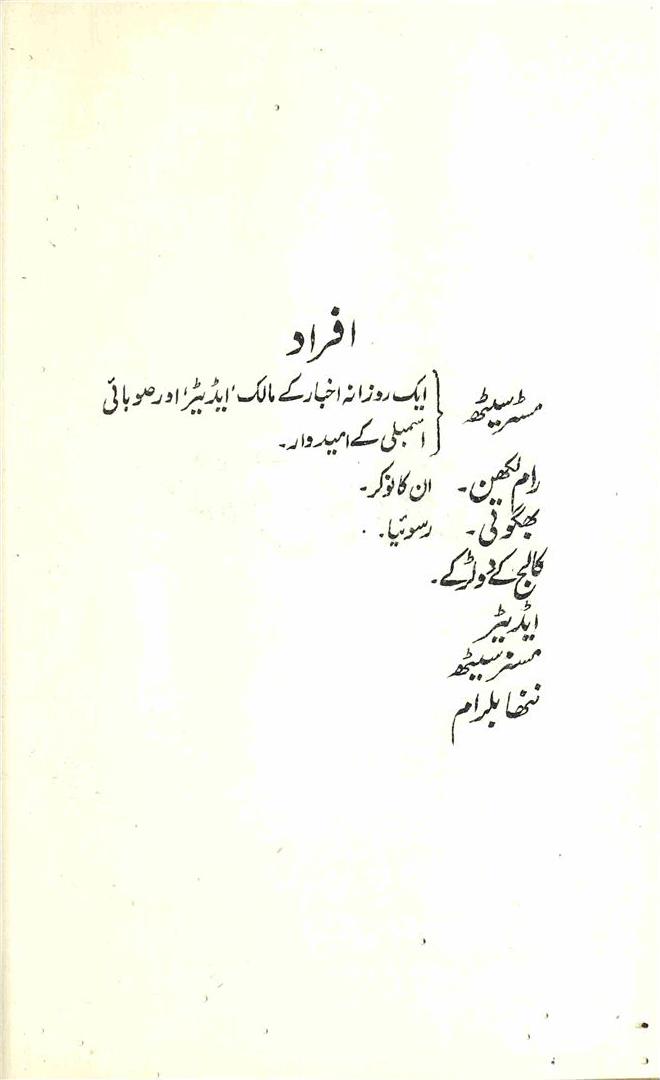 افراد
مسٹر سیٹھ { ایک روزانہ اخبار کے مالک ’ایڈیٹر‘ اور صوبائی
اسمبلی کے امیدوار۔
رام لکھن۔ ان کا نوکر۔
بھگوتی۔ رسوئیا۔
کالج کے دو لڑکے۔
ایڈیٹر
مسز سیٹھ
ننھا بلرام